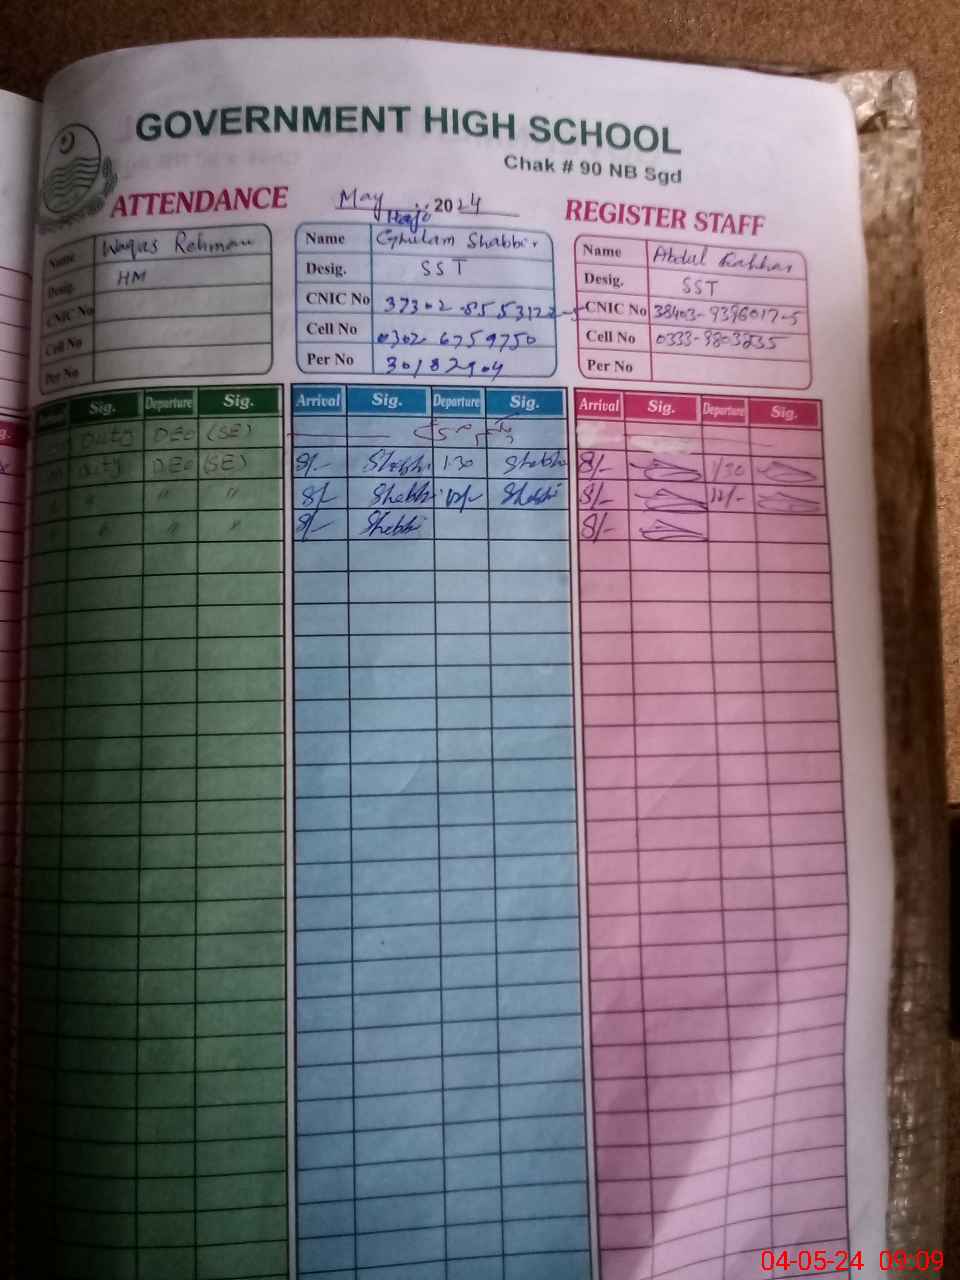 GOVERNMENT HIGH SCHOOL
Chak # 90 NB Sgd
ATTENDANCE May 2024 REGISTER STAFF
Name Waqas Rehman
Desig. HM
CNIC No
Cell No
Per No
Haji
Name Ghulam Shabbir
Desig. SST
CNIC No
Cell No 0302-6759750
Per No 30182904
Name Abdul
Desig. SST
CNIC No 38403-9396017-5
Cell No 0333-9803235
Per No
Sig. Departure Sig. Arrival Sig. Departure Sig. Arrival Sig. Departure Sig.
Duty DEO (SE)
Duty DEO (SE) 8/- 1.30 8/- 1/30
" " " 8/- 12/- 8/- 12/-
" " " 8/- 8/-
04-05-24 09:09